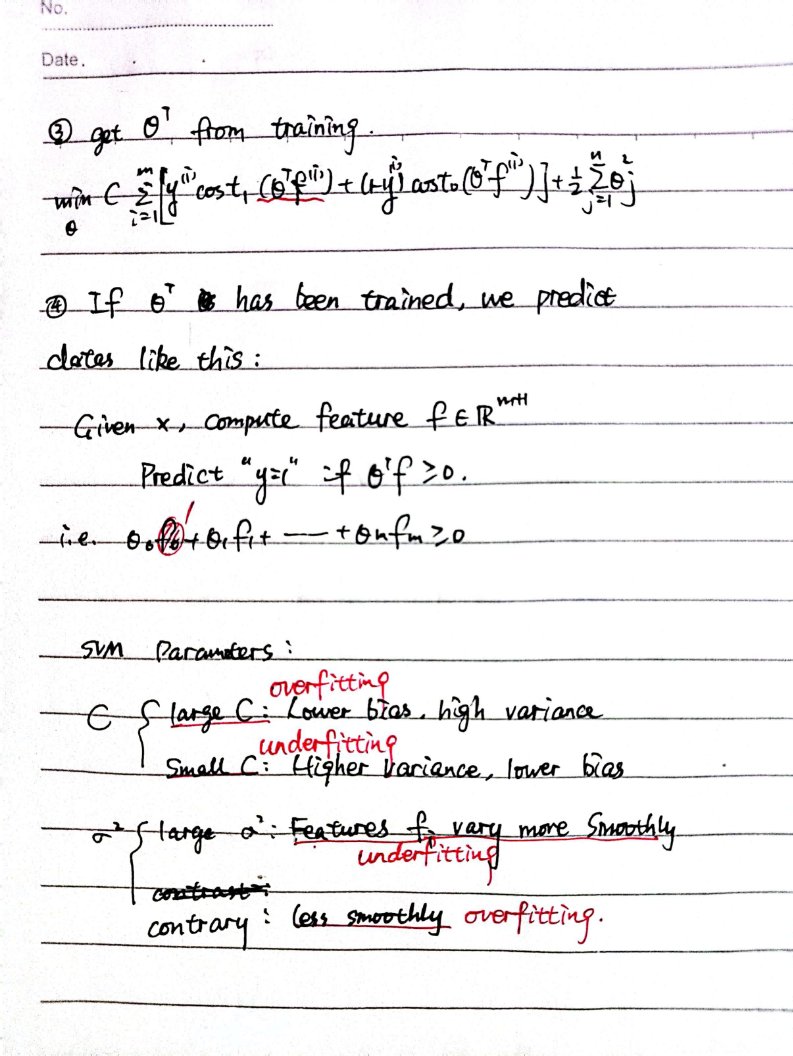 No.
Date.
③ get θᵀ from training.
min_θ C Σ_{i=1}^{m} [y⁽ⁱ⁾ cost₁ (θᵀf⁽ⁱ⁾) + (1-y⁽ⁱ⁾) cost₀ (θᵀf⁽ⁱ⁾)] + ½ Σ_{j=1}^{n} θ²ⱼ
④ If θᵀ has been trained, we predict
datas like this:
Given x, compute feature f ∈ ℝᵐ⁺¹
Predict "y=1" if θᵀf ≥ 0.
i.e. θ₀f₀ + θ₁f₁ + —— + θₙfₘ ≥ 0
1
SVM Parameters:
overfitting
C { large C: Lower bias. high variance
underfitting
Small C: Higher Variance, lower bias
σ² { large σ²: Features fᵢ vary more Smoothly
underfitting
contrast:
contrary: less smoothly overfitting.